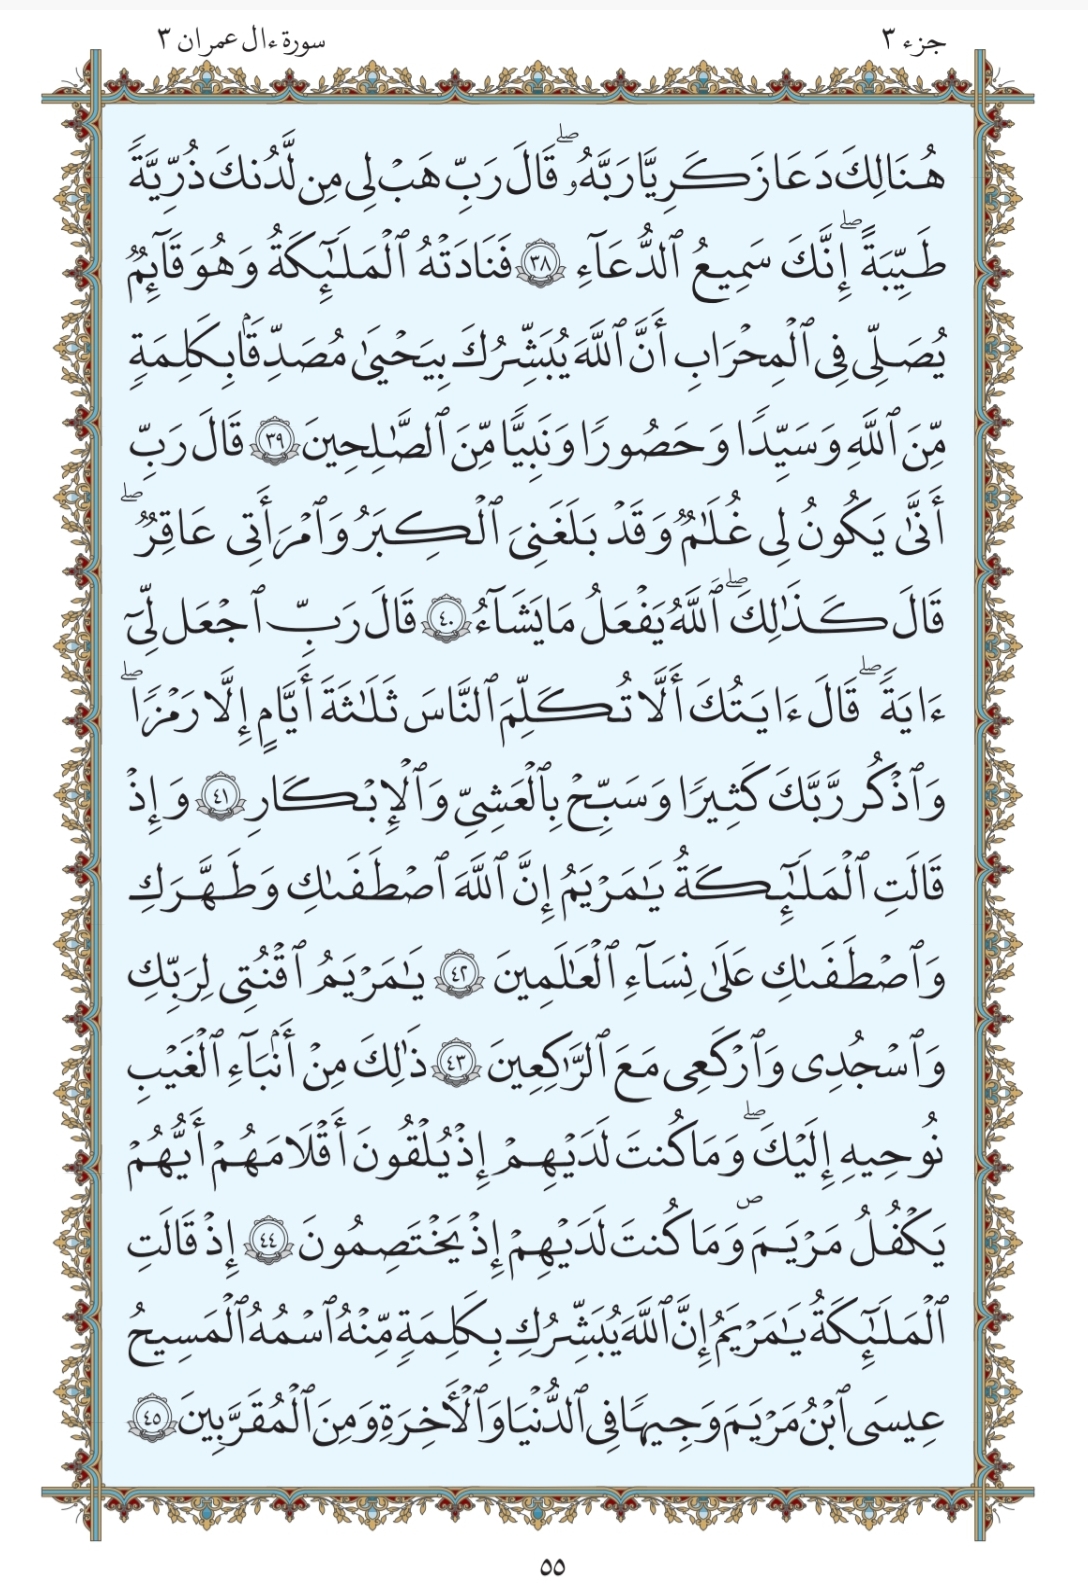 جزء ٣
سورة ءال عمران ٣
هُنَالِكَ دَعَا زَكَرِيَّا رَبَّهُۥ ۖ قَالَ رَبِّ هَبْ لِى مِن لَّدُنكَ ذُرِّيَّةً
طَيِّبَةً ۖ إِنَّكَ سَمِيعُ ٱلدُّعَآءِ ٣٨ فَنَادَتْهُ ٱلْمَلَـٰٓئِكَةُ وَهُوَ قَآئِمٌ
يُصَلِّى فِى ٱلْمِحْرَابِ أَنَّ ٱللَّهَ يُبَشِّرُكَ بِيَحْيَىٰ مُصَدِّقًۢا بِكَلِمَةٍ
مِّنَ ٱللَّهِ وَسَيِّدًا وَحَصُورًا وَنَبِيًّا مِّنَ ٱلصَّـٰلِحِينَ ٣٩ قَالَ رَبِّ
أَنَّىٰ يَكُونُ لِى غُلَـٰمٌ وَقَدْ بَلَغَنِىَ ٱلْكِبَرُ وَٱمْرَأَتِى عَاقِرٌ ۖ
قَالَ كَذَٰلِكَ ۖ ٱللَّهُ يَفْعَلُ مَا يَشَآءُ ٤٠ قَالَ رَبِّ ٱجْعَل لِّىٓ
ءَايَةً ۖ قَالَ ءَايَتُكَ أَلَّا تُكَلِّمَ ٱلنَّاسَ ثَلَـٰثَةَ أَيَّامٍ إِلَّا رَمْزًا ۖ
وَٱذْكُر رَّبَّكَ كَثِيرًا وَسَبِّحْ بِٱلْعَشِىِّ وَٱلْإِبْكَـٰرِ ٤١ وَإِذْ
قَالَتِ ٱلْمَلَـٰٓئِكَةُ يَـٰمَرْيَمُ إِنَّ ٱللَّهَ ٱصْطَفَىٰكِ وَطَهَّرَكِ
وَٱصْطَفَىٰكِ عَلَىٰ نِسَآءِ ٱلْعَـٰلَمِينَ ٤٢ يَـٰمَرْيَمُ ٱقْنُتِى لِرَبِّكِ
وَٱسْجُدِى وَٱرْكَعِى مَعَ ٱلرَّٰكِعِينَ ٤٣ ذَٰلِكَ مِنْ أَنۢبَآءِ ٱلْغَيْبِ
نُوحِيهِ إِلَيْكَ ۖ وَمَا كُنتَ لَدَيْهِمْ إِذْ يُلْقُونَ أَقْلَامَهُمْ أَيُّهُمْ
يَكْفُلُ مَرْيَمَ ۖ وَمَا كُنتَ لَدَيْهِمْ إِذْ يَخْتَصِمُونَ ٤٤ إِذْ قَالَتِ
ٱلْمَلَـٰٓئِكَةُ يَـٰمَرْيَمُ إِنَّ ٱللَّهَ يُبَشِّرُكِ بِكَلِمَةٍ مِّنْهُ ٱسْمُهُ ٱلْمَسِيحُ
عِيسَى ٱبْنُ مَرْيَمَ وَجِيهًا فِى ٱلدُّنْيَا وَٱلْأَخِرَةِ وَمِنَ ٱلْمُقَرَّبِينَ ٤٥
٥٥